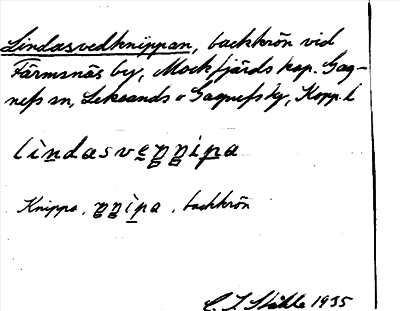 Lindasvedknippan, backkrön vid
Färmsnäs by, Mockfjärds kap. Gag-
nefs sn, Leksands o Gagnefs tg, Kopp. l
lindasveŋŋipa
Knippa, ŋŋipa, backkrön
C. I. Ståhle 1935